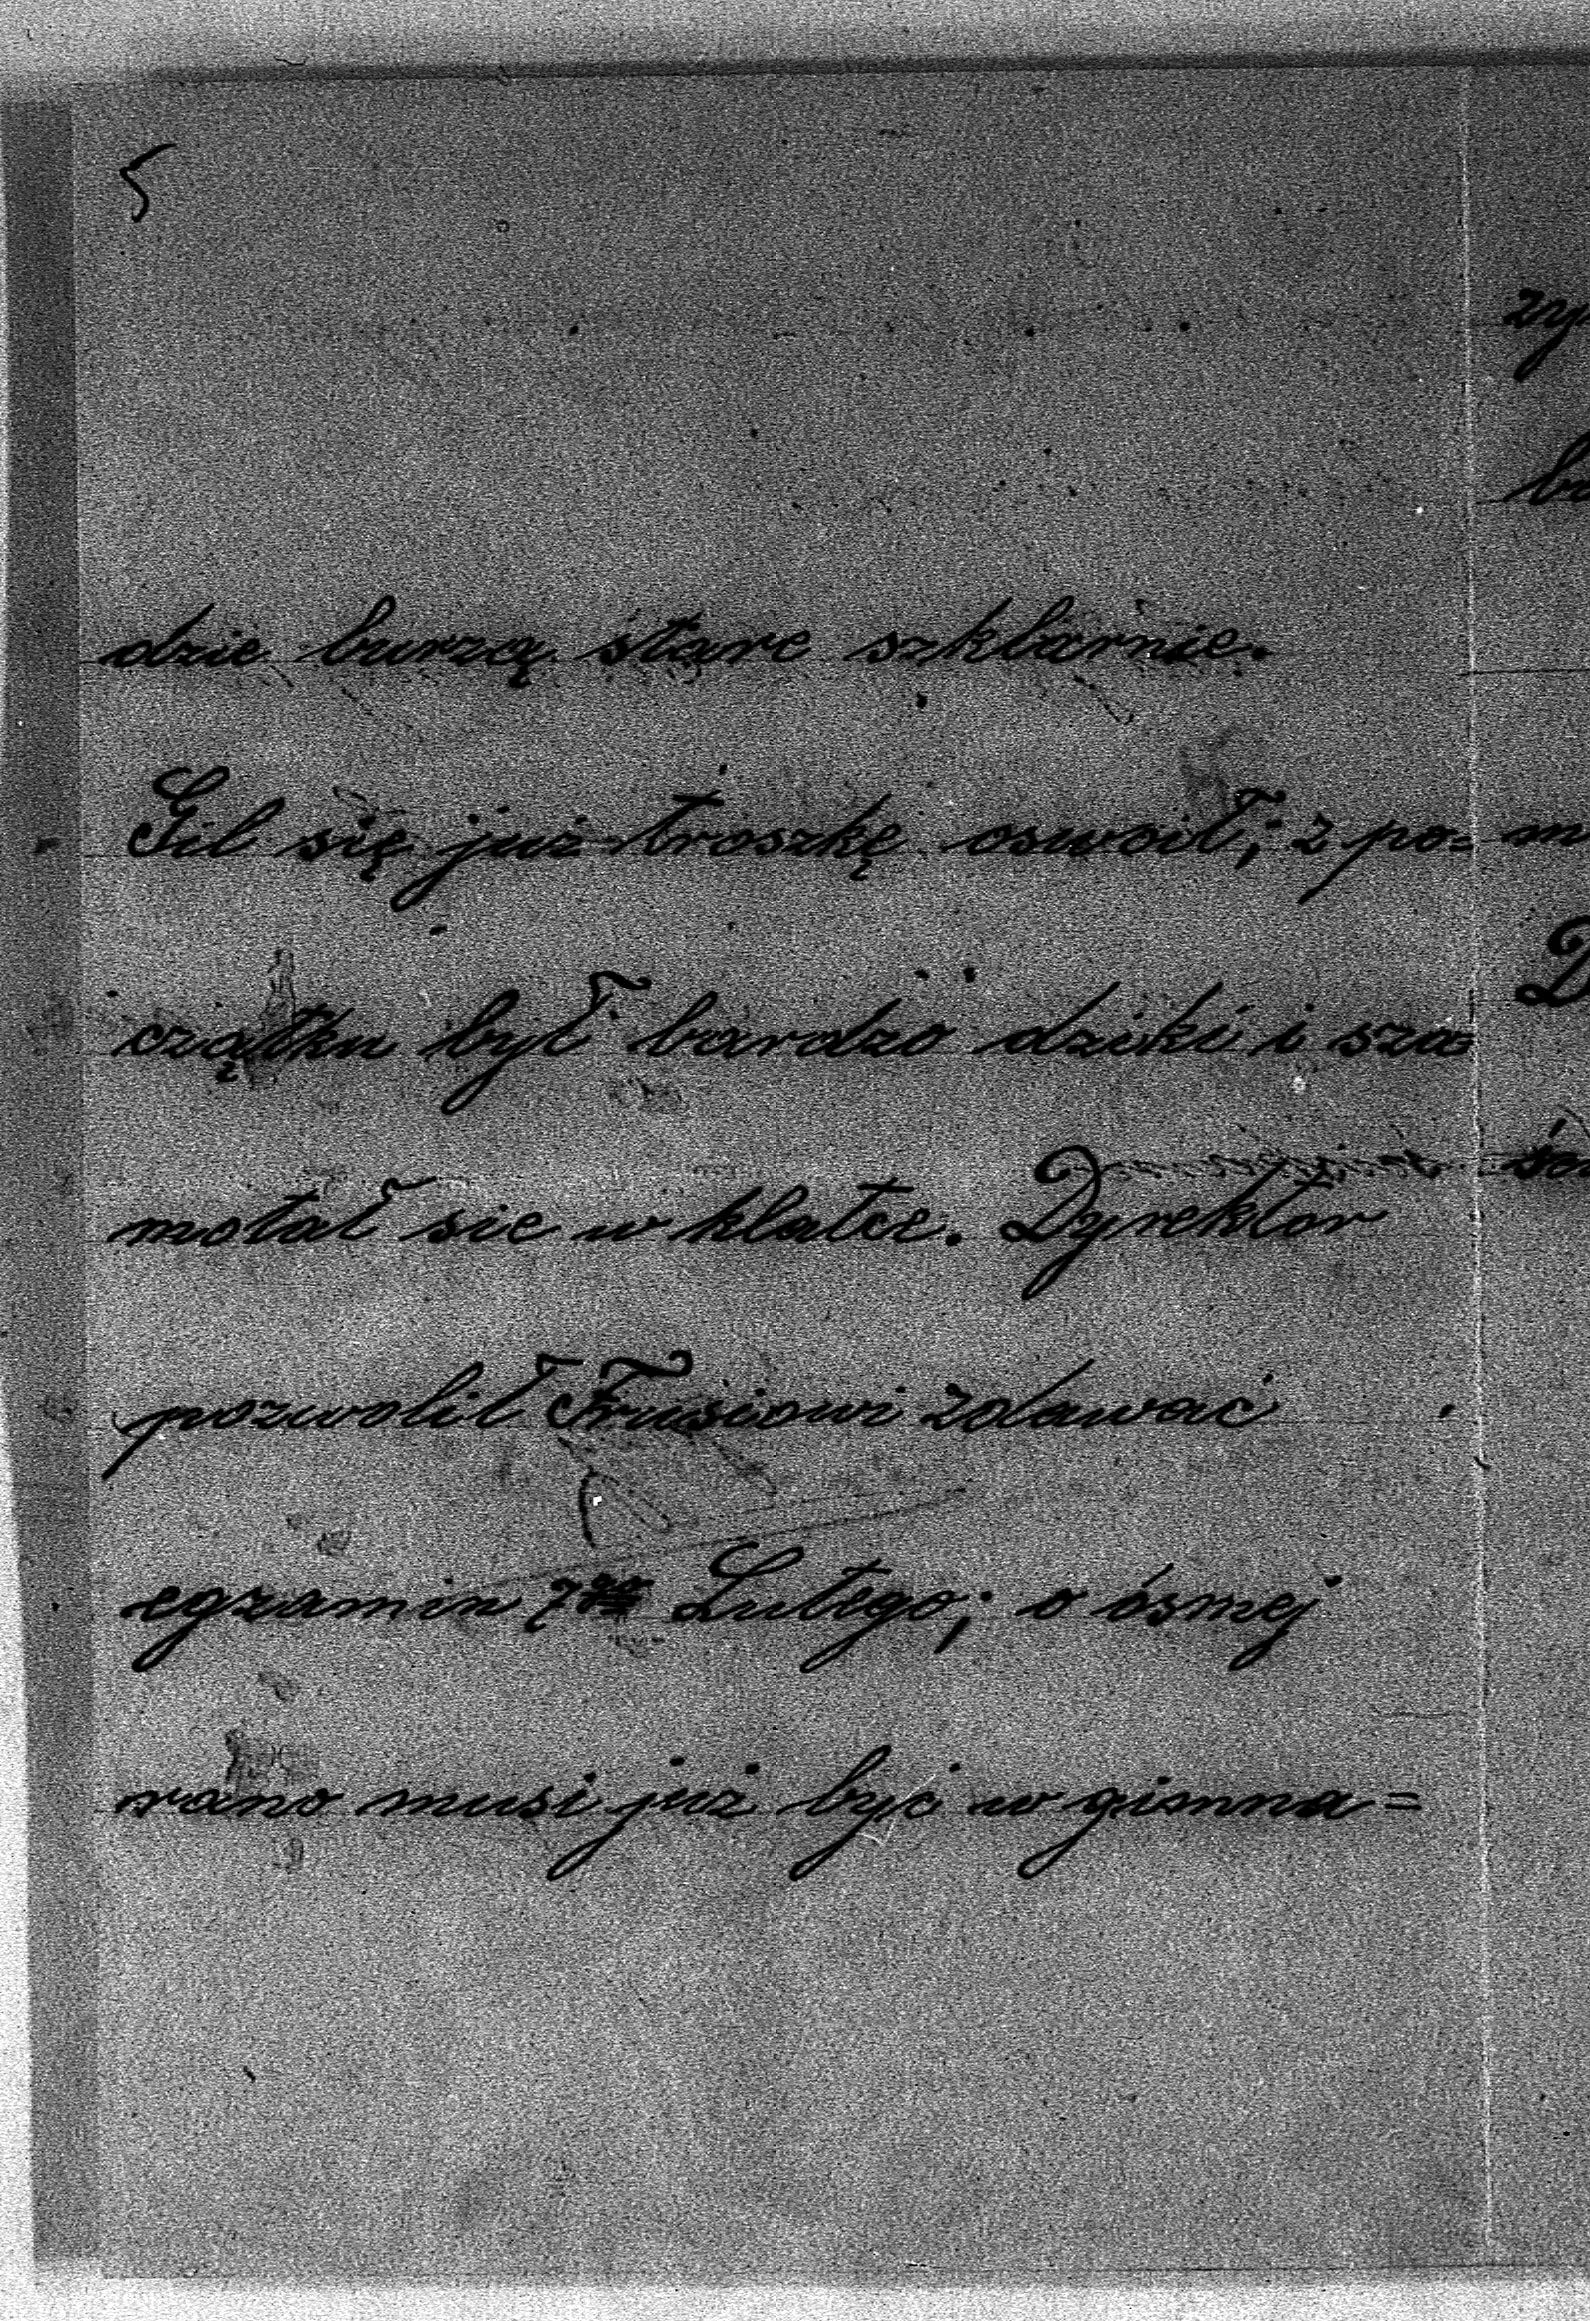 5
dzie burzą stare szklarnie.
Gil się już troszkę oswoił; z po=
czątku był bardzo dziki i sza=
motał sie w klatce. Dyrektor
pozwolił Frusiowi zdawać
egzamin 7go Lutego; o ósmej
rano musi już być w gimna=